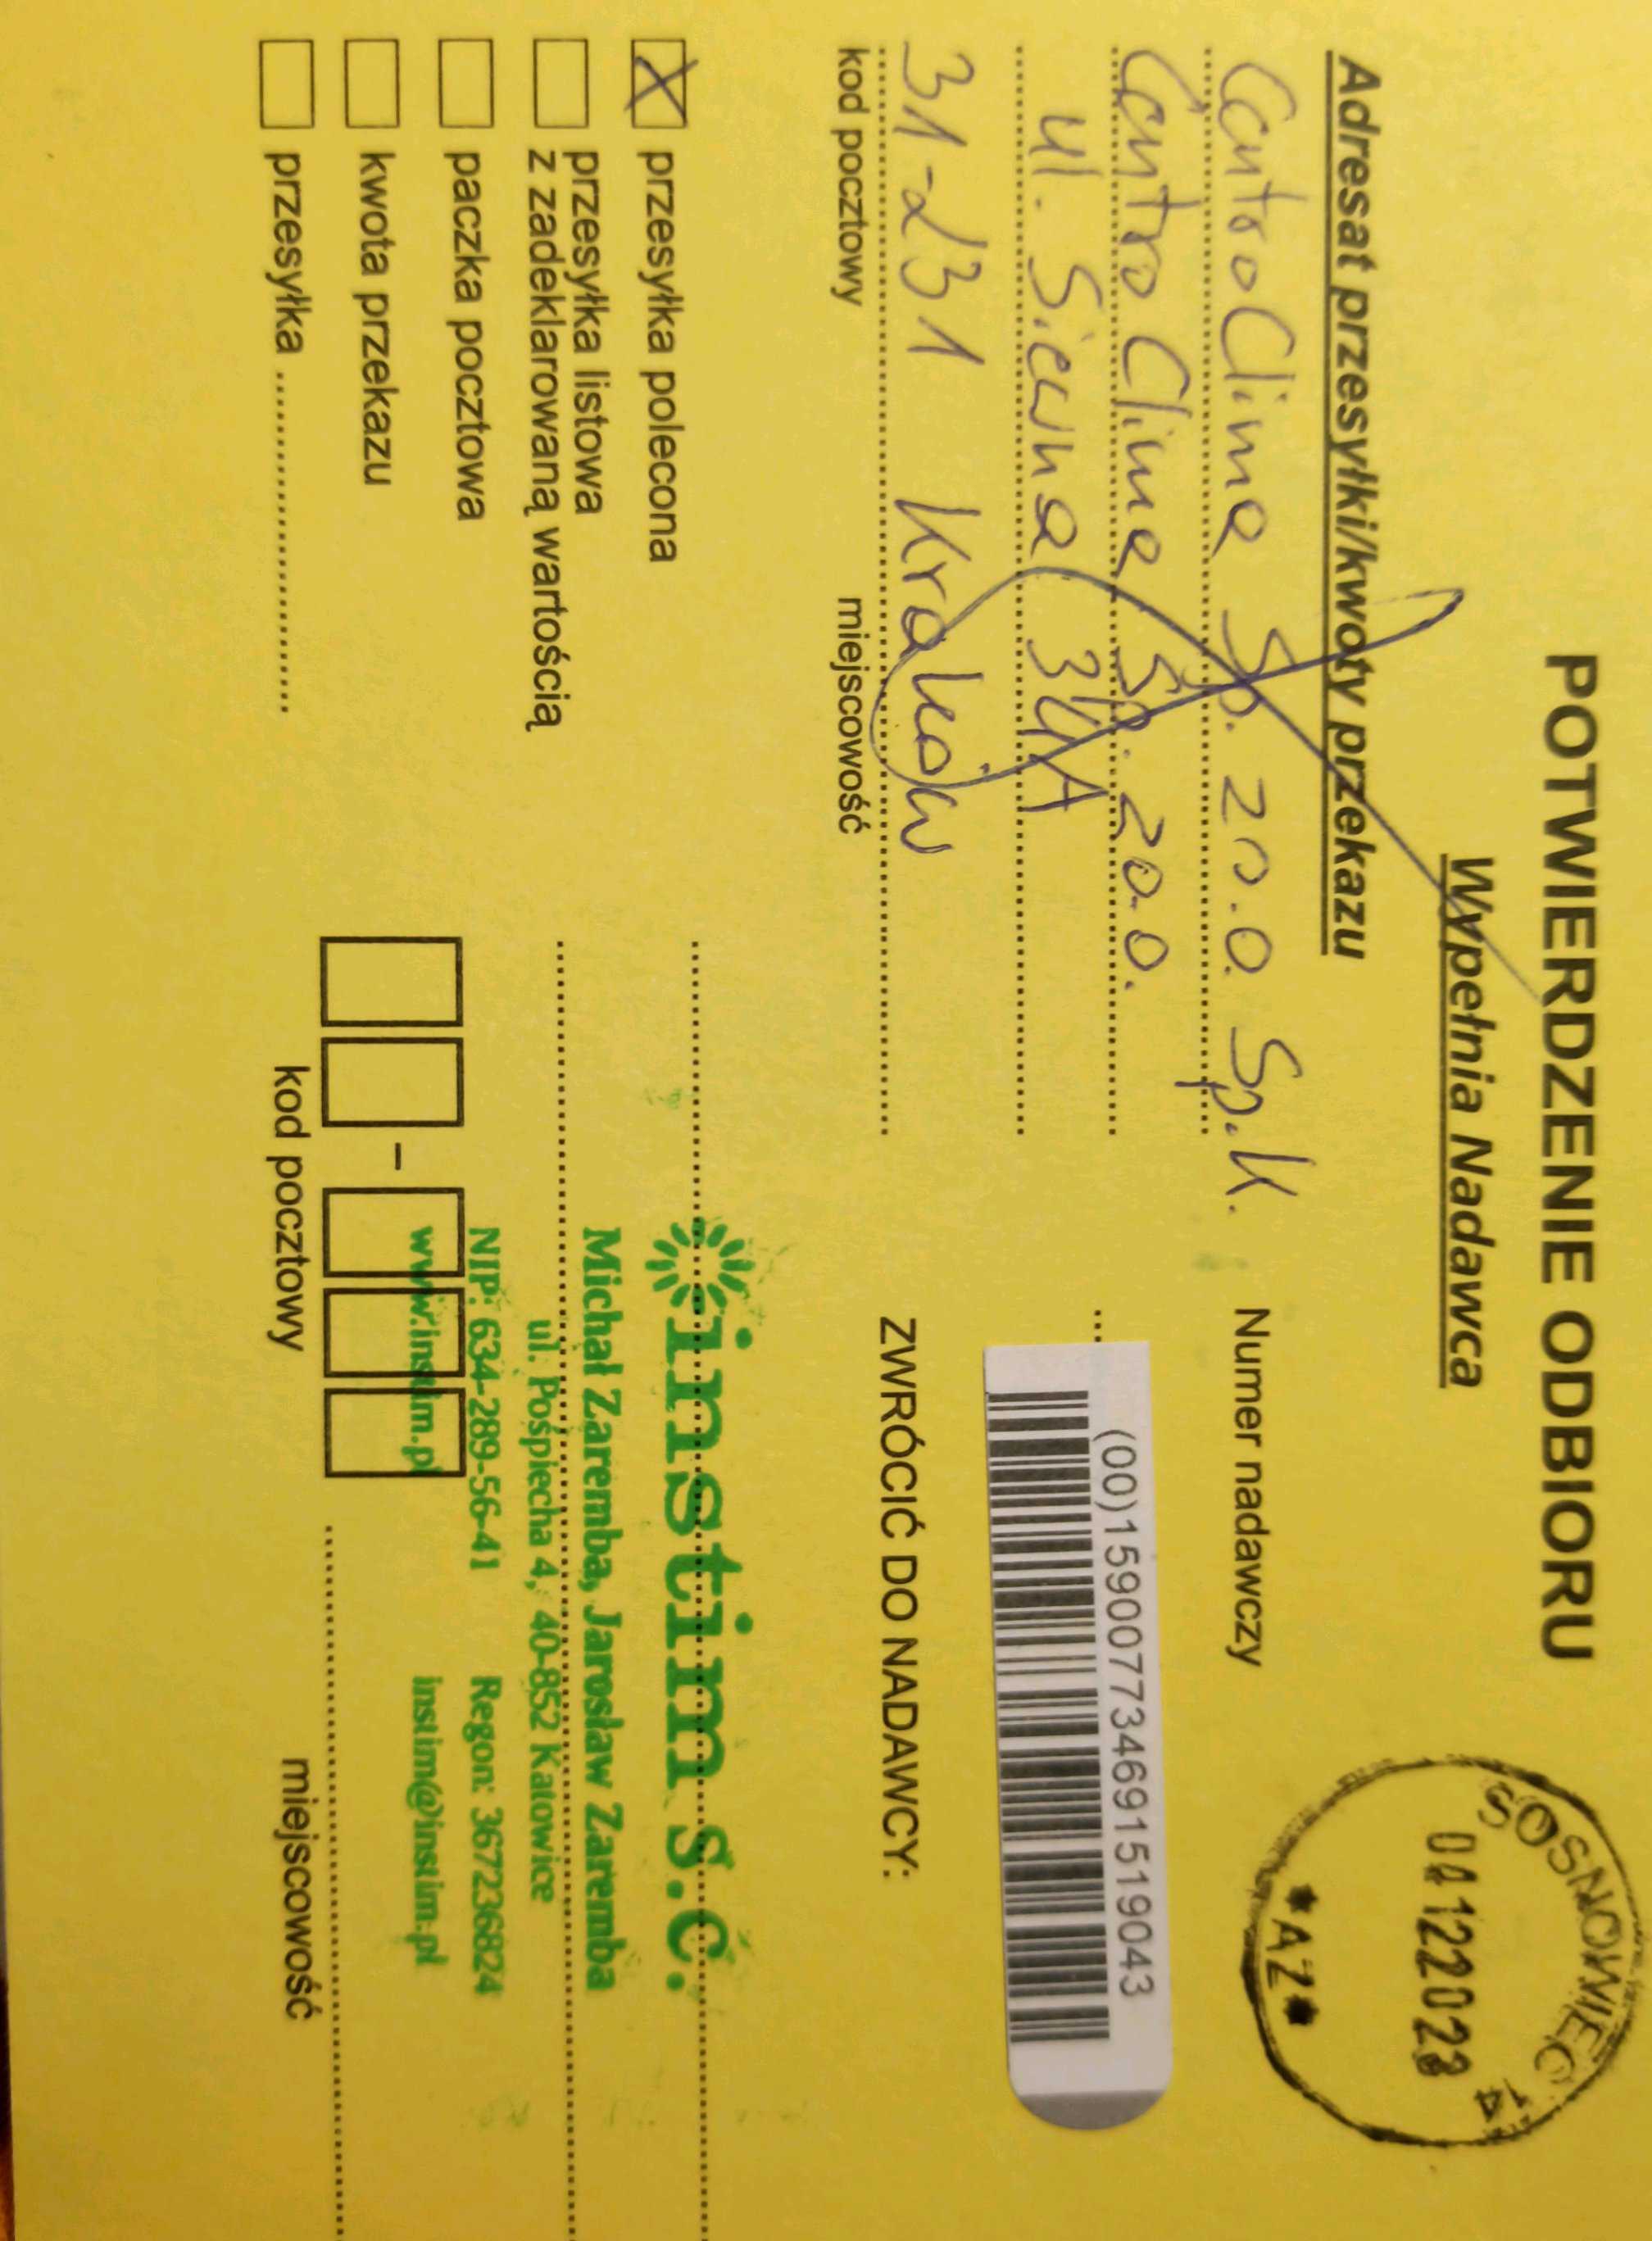 POTWIERDZENIE ODBIORU
Wypełnia Nadawca
Adresat przesyłki/kwoty przekazu
CentroClima Sp. zo.o. Sp.k.
Centro Clima Sp. zo.o.
ul. Siewna 34A
31-231 Kraków
kod pocztowy miejscowość
przesyłka polecona
przesyłka listowa
z zadeklarowaną wartością
paczka pocztowa
kwota przekazu
przesyłka
SOSNOWIEC 14
*AZ*
Numer nadawczy
(00)159007734691519043
ZWRÓCIĆ DO NADAWCY:
instim s.c.
Michał Zaremba, Jarosław Zaremba
ul. Pośpiecha 4, 40-852 Katowice
NIP: 634-289-56-41 Regon: 367236824
www.instim.pl instim@instim.pl
kod pocztowy miejscowość